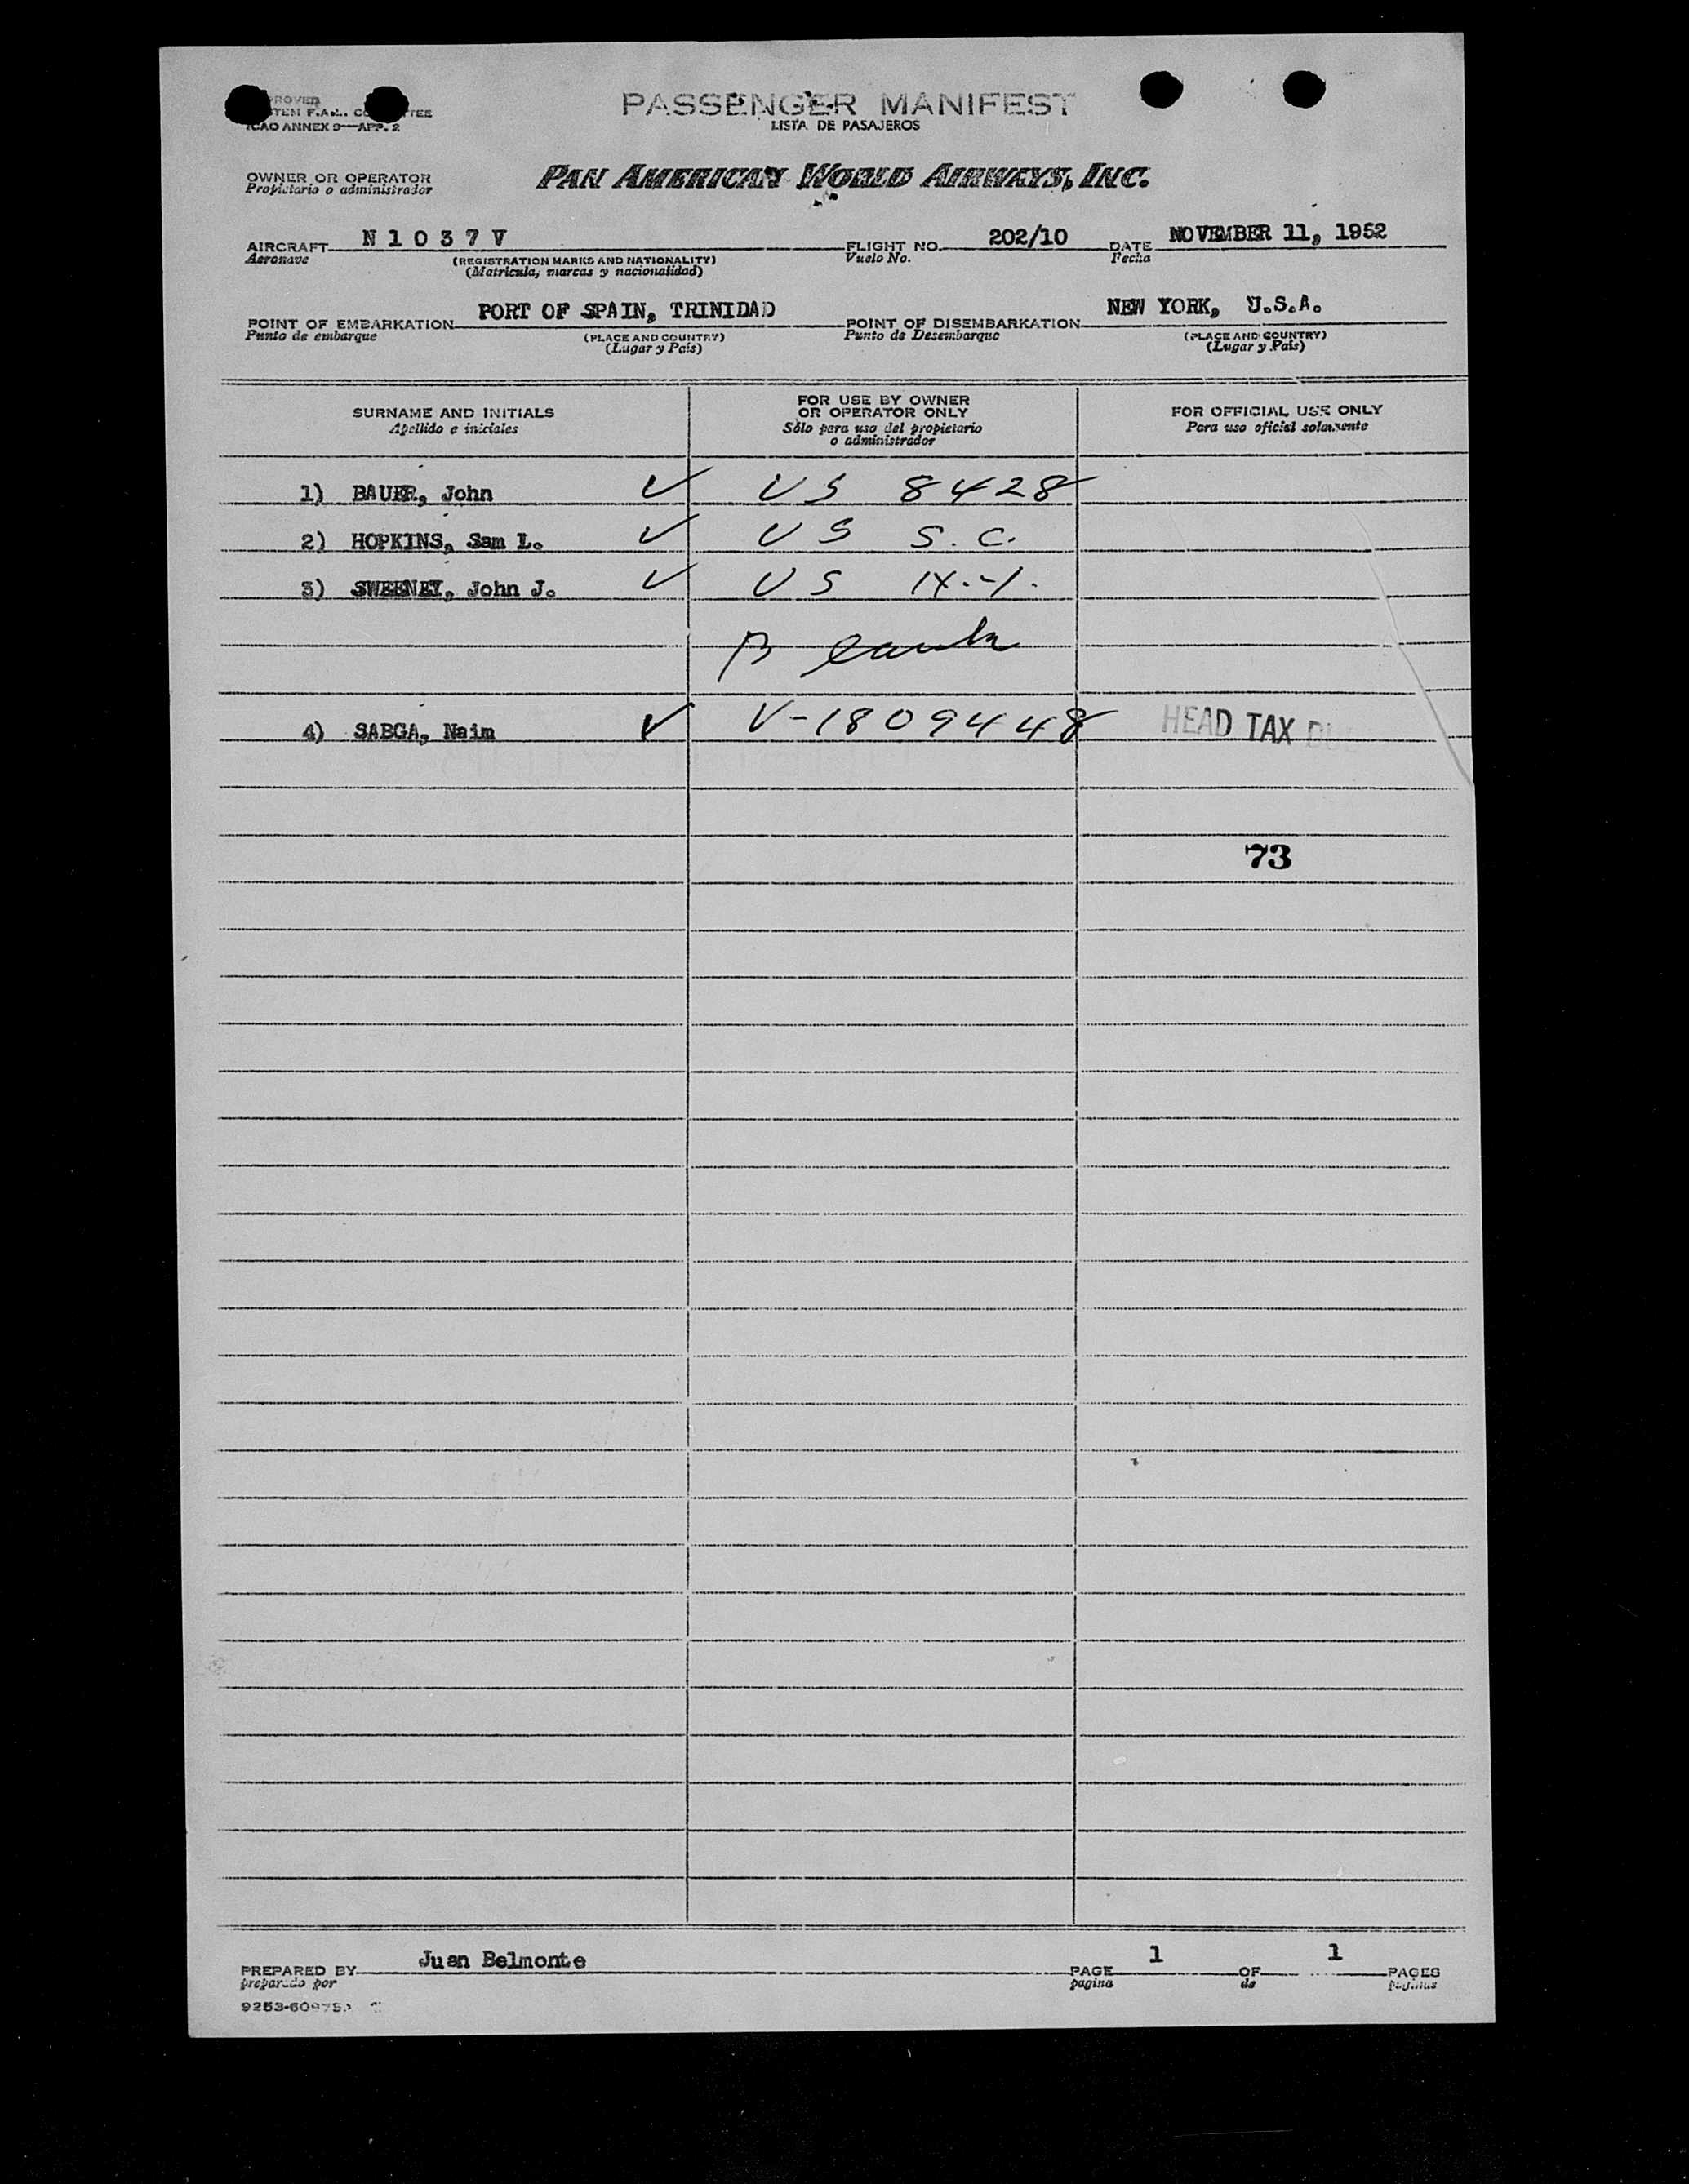 PASSENGER MANIFEST
LISTA DE PASAJEROS
ICAO ANNEX 9—APP. 2
OWNER OR OPERATOR
Propietario o administrador
PAN AMERICAN WORLD AIRWAYS, INC.
AIRCRAFT N 1 0 3 7 V FLIGHT NO. 202/10 DATE NOVEMBER 11, 1952
Aeronave Vuelo No. Fecha
(REGISTRATION MARKS AND NATIONALITY)
(Matricula, marcas y nacionalidad)
POINT OF EMBARKATION PORT OF SPAIN, TRINIDAD POINT OF DISEMBARKATION NEW YORK, U.S.A.
Punto de embarque (PLACE AND COUNTRY) Punto de Desembarque (PLACE AND COUNTRY)
(Lugar y País) (Lugar y País)
SURNAME AND INITIALS FOR USE BY OWNER OR OPERATOR ONLY FOR OFFICIAL USE ONLY
Apellido e iniciales Sólo para uso del propietario o administrador Para uso oficial solamente
1) BAUER, John ✓ US 8428
2) HOPKINS, Sam L. ✓ US S.C.
3) SWEENEY, John J. ✓ US
4) SABGA, Naim ✓ V-1809448 HEAD TAX DUE
73
PREPARED BY Juan Belmonte PAGE 1 OF 1 PAGES
preparado por pagina de paginas